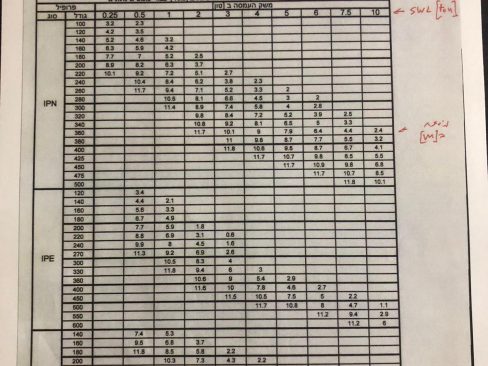 פרופיל משקל העמסה ב [טון]
סוג גודל 0.25 0.5 1 2 3 4 5 6 7.5 10
SWL [ton]
IPN
100 3.2 2.3
120 4.2 3.5
140 5.2 4.6 3.2
160 6.3 5.9 4.2
180 7.7 7 5.2 2.5
200 8.9 8.2 6.3 3.7
220 10.1 9.2 7.2 5.1 2.7
240 10.4 8.4 6.2 3.8 2.3
260 11.7 9.4 7.1 5.2 3.3 2
280 10.6 8.1 6.6 4.5 3 2
300 11.4 8.9 7.4 5.8 4 2.6
320 9.8 8.4 7.2 5.2 3.9 2.5
340 10.8 9.2 8.1 6.5 5 3.3
360 11.7 10.1 9 7.9 6.4 4.4 2.4
380 11 9.8 8.7 7.7 5.5 3.2
400 11.8 10.6 9.5 8.7 6.7 4.1
425 11.7 10.7 9.8 8.5 5.5
450 11.7 10.9 9.8 6.8
475 11.7 10.7 8.5
500 11.8 10.1
[m]
IPE
120 3.4
140 4.4 2.1
160 5.6 3.3
180 6.7 4.9
200 7.7 5.9 1.8
220 8.8 6.9 3.1 0.6
240 9.9 8 4.5 1.6
270 11.3 9.2 6.9 2.6
300 10.5 8.3 4
330 11.8 9.4 6 3
360 10.6 9 5.4 2.9
400 11.6 10 7.8 4.6 2.7
450 11.5 10.5 7.5 5 2.2
500 11.7 10.8 8 4.7 1.1
550 11.2 9.4 2.9
600 11.2 6
140 7.4 5.3
160 9.5 6.8 3.7
180 11.8 8.5 5.8 2.2
200 10.3 7.3 4.3 2.2